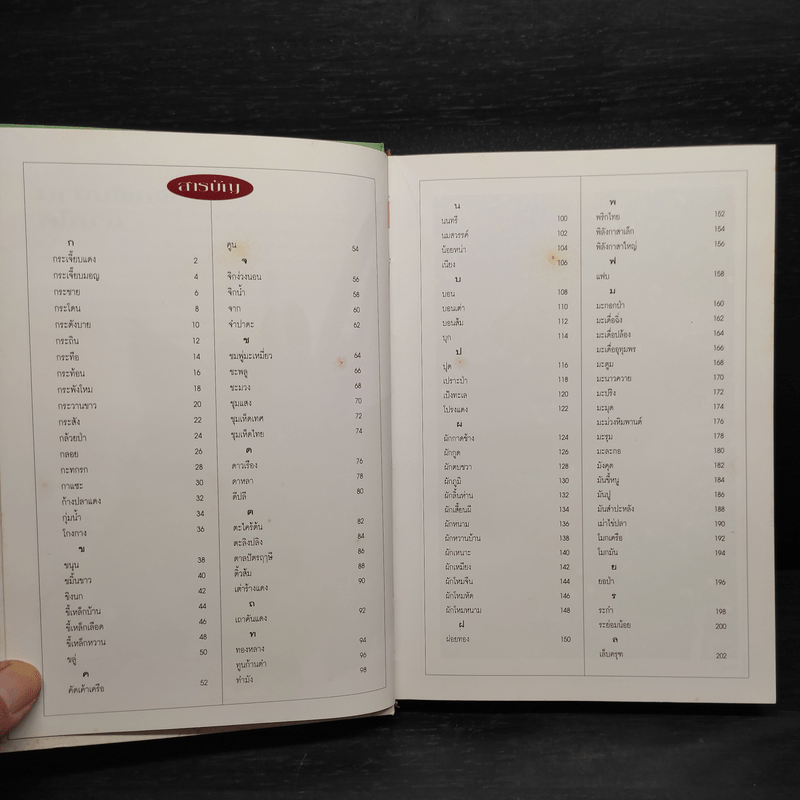 สารบัญ
ก
กระเจี๊ยบแดง 2
กระเจี๊ยบมอญ 4
กระชาย 6
กระโดน 8
กระดังบาย 10
กระถิน 12
กระทือ 14
กระท้อน 16
กระพังโหม 18
กระวานขาว 20
กระสัง 22
กล้วยป่า 24
กลอย 26
กะทกรก 28
กาแซะ 30
ก้างปลาแดง 32
กุ่มน้ำ 34
โกงกาง 36
ข
ขนุน 38
ขมิ้นขาว 40
ขิงนก 42
ขี้เหล็กบ้าน 44
ขี้เหล็กเลือด 46
ขี้เหล็กหวาน 48
ขลู่ 50
ค
คัดเค้าเครือ 52
คูน 54
จ
จิกง่วงนอน 56
จิกน้ำ 58
จาก 60
จำปาดะ 62
ช
ชมพู่มะเหมี่ยว 64
ชะพลู 66
ชะมวง 68
ชุมแสง 70
ชุมเห็ดเทศ 72
ชุมเห็ดไทย 74
ด
ดาวเรือง 76
ดาหลา 78
ดีปลี 80
ต
ตะไคร้ต้น 82
ตะลิงปลิง 84
ตาลปัตรฤๅษี 86
ติ้วส้ม 88
เต่าร้างแดง 90
ถ
เถาคันแดง 92
ท
ทองหลาง 94
ทูนก้านดำ 96
ทำมัง 98
น
นนทรี 100
นมสวรรค์ 102
น้อยหน่า 104
เนียง 106
บ
บอน 108
บอนเต่า 110
บอนส้ม 112
บุก 114
ป
ปุด 116
เปราะป่า 118
เป้งทะเล 120
โปรงแดง 122
ผ
ผักกาดช้าง 124
ผักกูด 126
ผักตบชวา 128
ผักภูมิ 130
ผักลิ้นห่าน 132
ผักเสี้ยนผี 134
ผักหนาม 136
ผักหวานบ้าน 138
ผักเหนาะ 140
ผักเหมียง 142
ผักโหมจีน 144
ผักโหมหัด 146
ผักโหมหนาม 148
ฝ
ฝอยทอง 150
พ
พริกไทย 152
พิลังกาสาเล็ก 154
พิลังกาสาใหญ่ 156
ฟ
แฟบ 158
ม
มะกอกป่า 160
มะเดื่อฉิ่ง 162
มะเดื่อปล้อง 164
มะเดื่ออุทุมพร 166
มะตูม 168
มะนาวควาย 170
มะปริง 172
มะมุด 174
มะม่วงหิมพานต์ 176
มะรุม 178
มะละกอ 180
มังคุด 182
มันขี้หนู 184
มันปู 186
มันสำปะหลัง 188
เม่าไข่ปลา 190
โมกเครือ 192
โมกมัน 194
ย
ยอป่า 196
ร
ระกำ 198
ระย่อมน้อย 200
ล
เล็บครุฑ 202